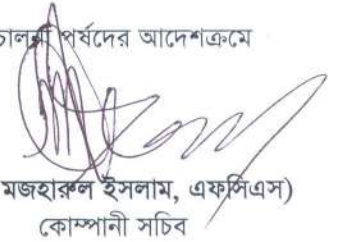 পর্ষদের আদেশক্রমে
মজহারুল ইসলাম, এফসিএস)
কোম্পানী সচিব